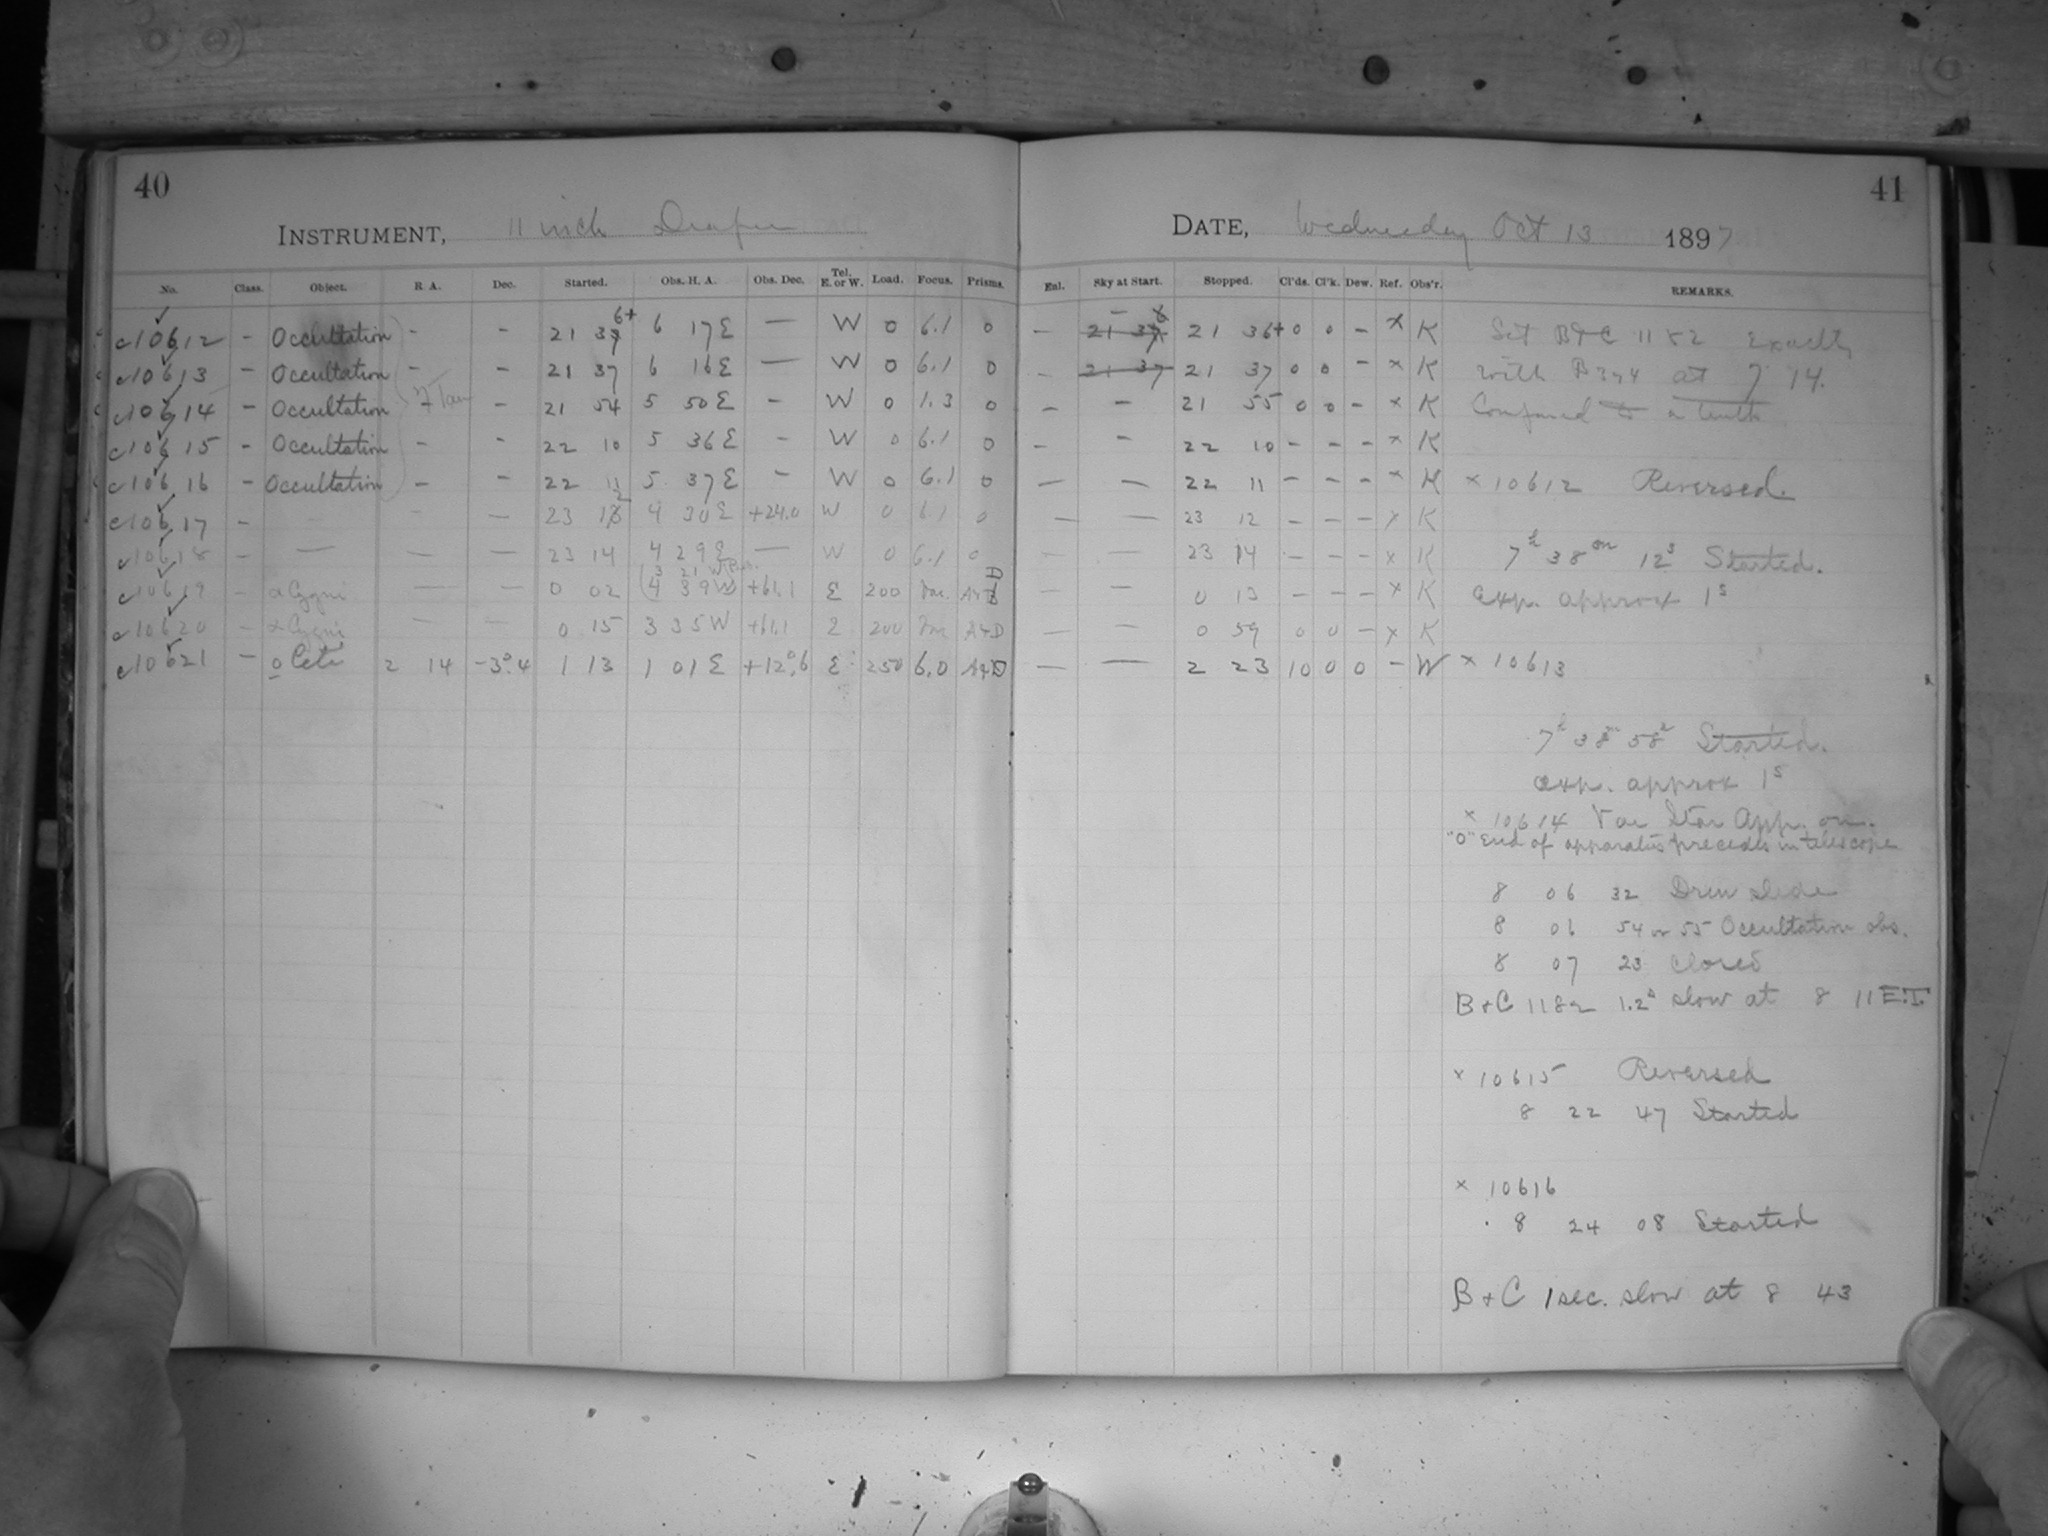 40
INSTRUMENT, 11 inch Draper
No. Class. Object. R. A. Dec. Started. Obs. H. A. Obs. Dec. Tel. E. or W. Load. Focus. Prisms.
c10612 - Occultation - - 21 36+ 6 17E — W 0 6.1 0
c10613 - Occultation - - 21 37 6 16E — W 0 6.1 0
c10614 - Occultation - 21 54 5 50E - W 0 1.3 0
c10615 - Occultation - - 22 10 5 36E - W 0 6.1 0
c10616 - Occultation - - 22 11 5 37E - W 0 6.1 0
c10617 - - — 23 12 4 30E +24.0 W 0 6.1 0
c10618 - — — — 23 14 4 29E — W 0 6.1 0
c10619 - α Cygni — — 0 02 (4 39W +61.1 E 200
3 21 W
c10620 Cygni — — 0 15 3 35W +61.1 200 A&D
c10621 - o Ceti 2 14 -3°.4 1 13 1 01E +12°.6 E 250 6.0 A&D
41
DATE, Wednesday Oct 13 1897
Enl. Sky at Start. Stopped. Cl'ds. Cl'k. Dew. Ref. Obs'r. REMARKS.
— 21 37 21 36+ 0 0 - x K Set B&C 1182 Exactly
- 21 37 21 37 0 0 - x K with at 7 14.
— — 21 55 0 0 - x K Compared to a tenth
— — 22 10 - - - x K
— — 22 11 - - - x K x 10612 Reversed.
— — 23 12 - - - x K
— — 23 14 - - - x K 7h 38m 12s Started.
0 13 - - - x K exp. approx 1s
— — 0 59 0 0 - x K
— — 2 23 10 0 0 - W x 10613
7h 38m 58s Started.
exp. approx 1s
x 10614 Var Star App. on.
"0" End of apparatus precedes in telescope
8 06 32 Drew slide
8 06 54 or 55 Occultation obs.
8 07 23 Closed
B&C 1182 1.2s slow at 8 11 E.T.
x 10615 Reversed
8 22 47 Started
x 10616
8 24 08 Started
B&C 1 sec. slow at 8 43